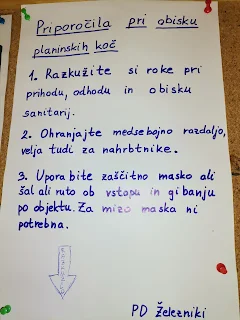 Priporočila pri obisku
planinskih koč
1. Razkužite si roke pri
prihodu, odhodu in obisku
sanitarij.
2. Ohranjajte medsebojno razdaljo,
velja tudi za nahrbtnike.
3. Uporabite zaščitno masko ali
šal ali ruto ob vstopu in gibanju
po objektu. Za mizo maska ni
potrebna.
PD Železniki